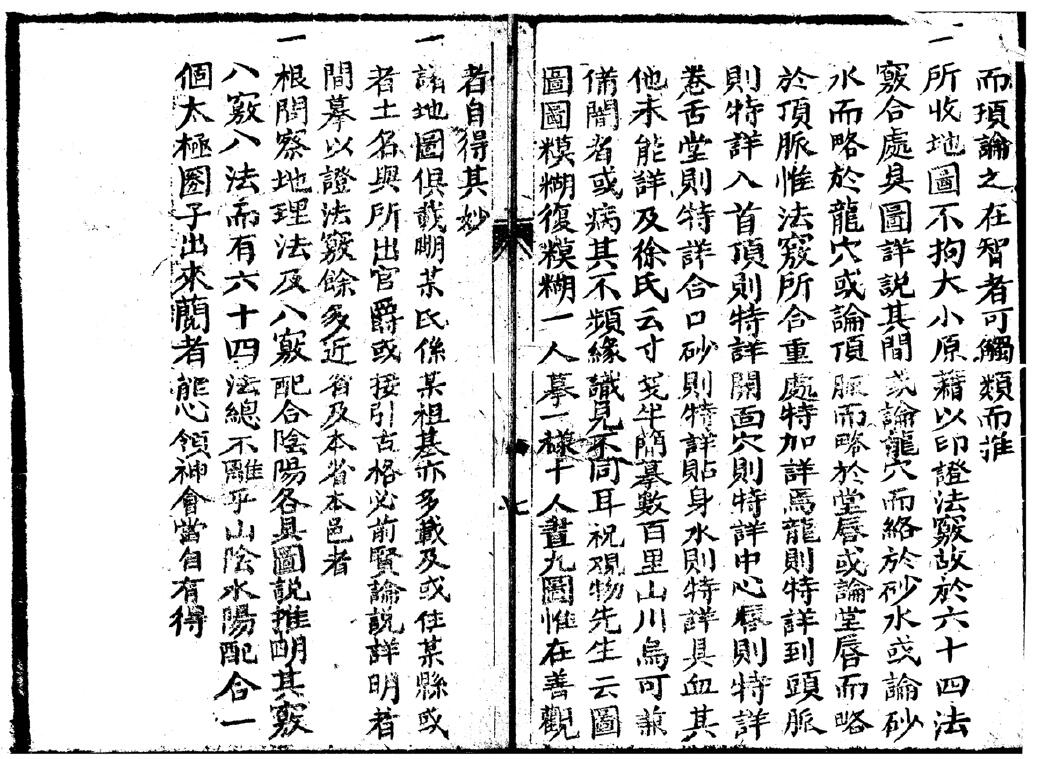 而項論之在智者可觸類而推
一所收地圖不拘大小原藉以印證法竅故於六十四法
竅合處具圖詳說其間或論龍穴而絡於砂水或論砂
水而略於龍穴或論頂脈而略於堂唇或論堂唇而略
於頂脈惟法竅所合重處特加詳焉龍則特詳到頭脈
則特詳入首頂則特詳開面穴則特詳中心唇則特詳
卷舌堂則特詳合口砂則特詳貼身水則特詳具血其
他未能詳及徐氏云寸箋半簡摹數百里山川焉可兼
備閱者或病其不頻緣識見不同耳祝賜物先生云圖
圖圖糢糊復糢糊一人摹一樣十人畫九圖惟在善觀
者自得其妙
一諸地圖俱載明某氏係某祖基亦多載及或住某縣或
者土名與所出官爵或接引古格必前賢論說詳明者
間摹以證法竅餘多近省及本省本邑者
一根閱察地理法及八竅配合陰陽各具圖說推明其竅
八竅八法而有六十四法總不離乎山陰水陽配合一
個太極圈子出來閱者能心領神會當自有得
七